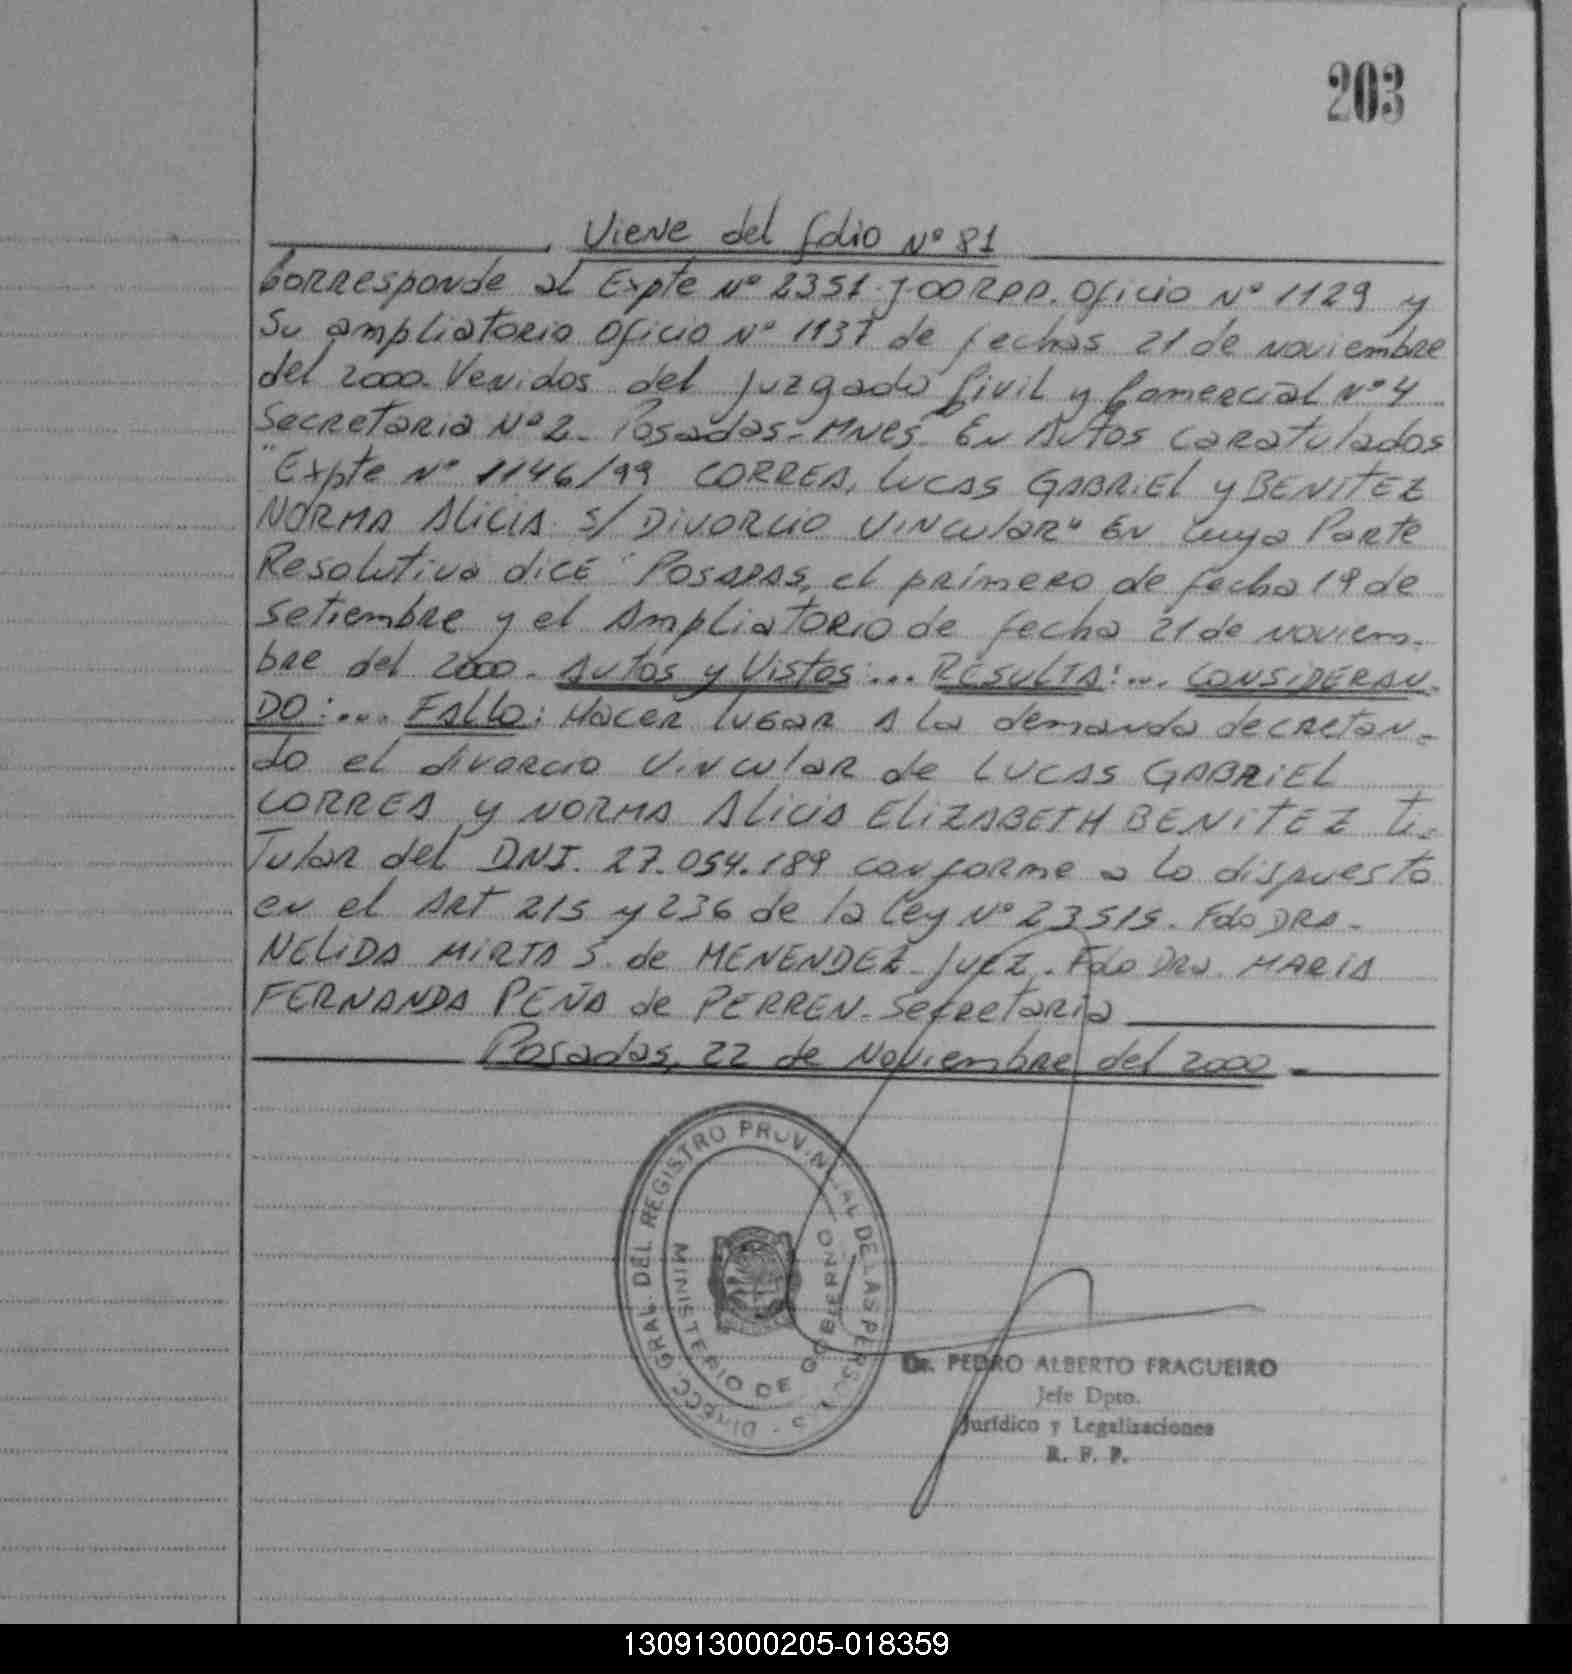 203
Viene del folio Nº 81
Corresponde al Expte Nº 2351-J00RPP. Oficio Nº 1129 y
Su ampliatorio oficio Nº 1137 de fechas 21 de noviembre
del 2000. Venidos del Juzgado Civil y Comercial Nº 4
Secretaria Nº 2 - Posadas - Mnes. En Autos caratulados
"Expte Nº 1146/99 CORREA, LUCAS GABRIEL y BENITEZ
NORMA ALICIA S/ DIVORCIO VINCULAR" En Cuya Parte
Resolutiva dice "POSADAS, el primero de fecha 19 de
setiembre y el Ampliatorio de fecha 21 de noviem-
bre del 2000. Autos y Vistos:... RESULTA:... CONSIDERAN-
DO:... FALLO: HACER lugar a la demanda decretan-
do el divorcio vincular de LUCAS GABRIEL
CORREA y NORMA ALICIA ELIZABETH BENITEZ ti-
tular del DNI. 27.054.189 conforme a lo dispuesto
en el Art 215 y 236 de la ley Nº 23515. Fdo DRA.
NELIDA MIRTA S. de MENENDEZ - Juez. Fdo Dra. MARIA
FERNANDA PEÑA de PERREN - Secretaria
Posadas, 22 de Noviembre del 2000.
DIRECC. GRAL. DEL REGISTRO PROVINCIAL DE LAS PERSONAS
MINISTERIO DE GOBIERNO
Dr. PEDRO ALBERTO FRAGUEIRO
Jefe Dpto.
Jurídico y Legalizaciones
R. P. P.
130913000205-018359